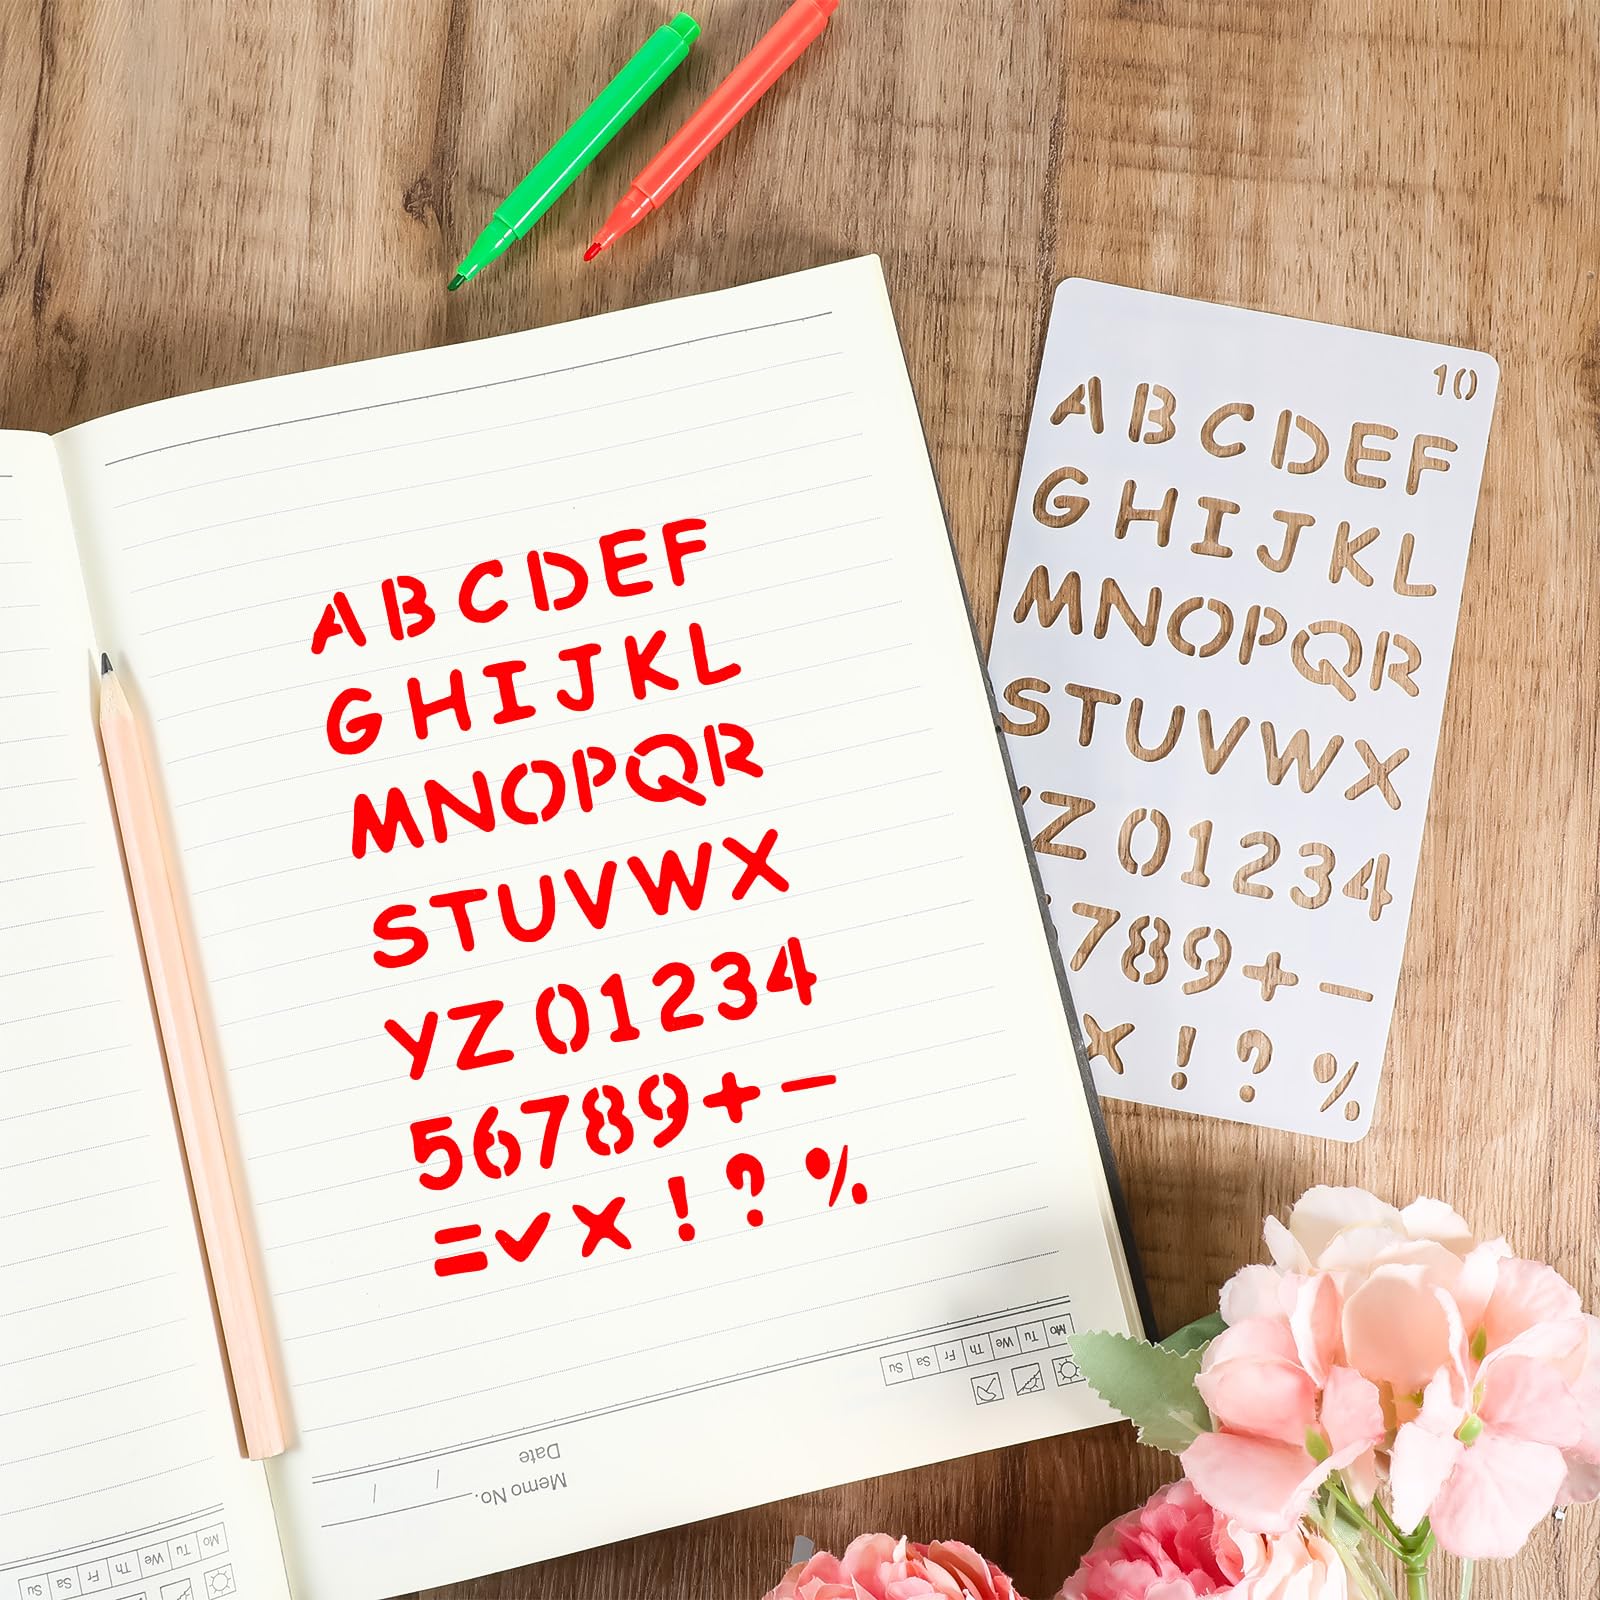 ABCDEF
GHIJKL
MNOPQR
STUVWX
YZ 01234
56789+−
=✓× ! ? %
10
ABCDEF
GHIJKL
MNOPQR
STUVWX
YZ 01234
789+−
× ! ? %
Mo Tu We Th Fr Sa Su
Memo No.
Date / /
Mo Tu We Th Fr Sa Su